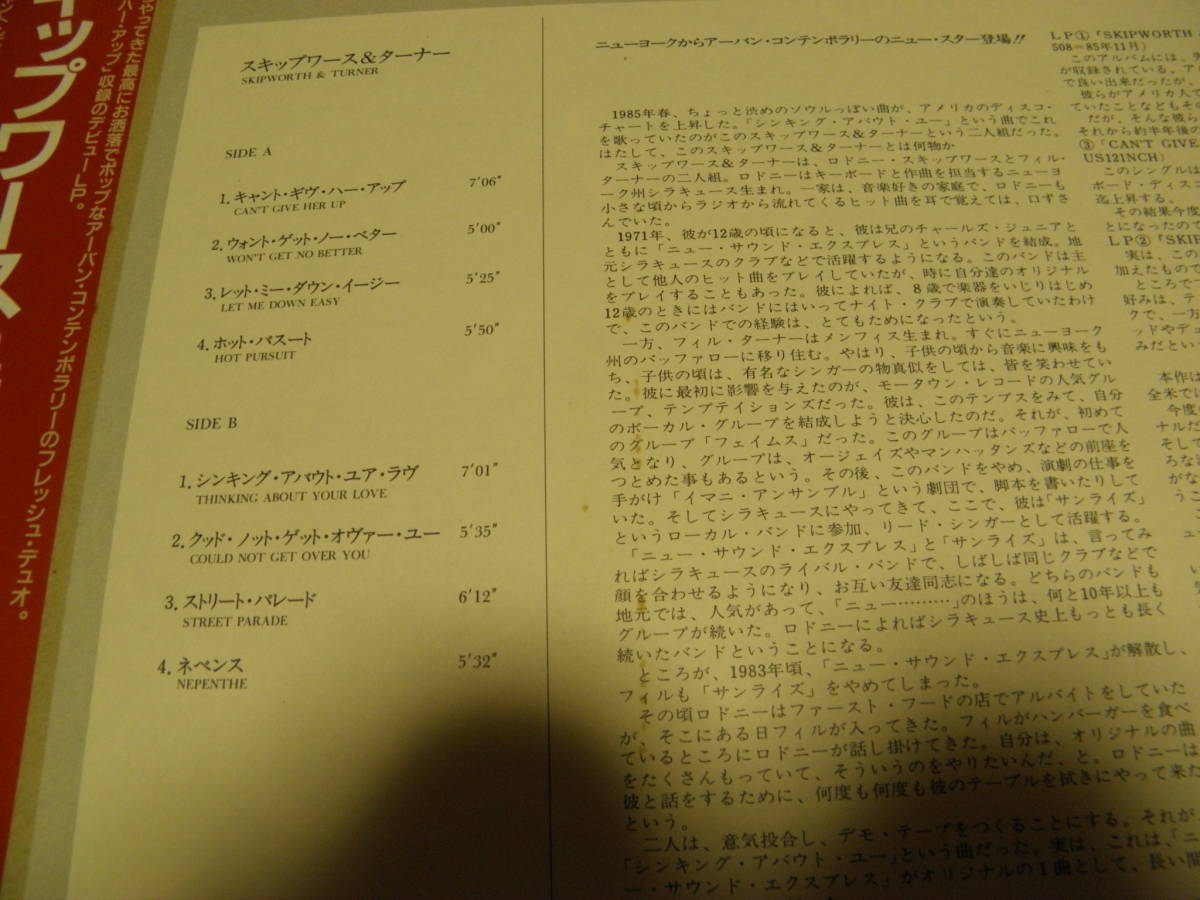 ップワース
やってきた最高にお洒落でポップなアーバン・コンテンポラリーのフレッシュ・デュオ。
ハー・アップ」収録のデビューLP。
スキップワース&ターナー
SKIPWORTH & TURNER
SIDE A
1. キャント・ギヴ・ハー・アップ 7'06"
CAN'T GIVE HER UP
2. ウォント・ゲット・ノー・ベター 5'00"
WON'T GET NO BETTER
3. レット・ミー・ダウン・イージー 5'25"
LET ME DOWN EASY
4. ホット・パスート 5'50"
HOT PURSUIT
SIDE B
1. シンキング・アバウト・ユア・ラヴ 7'01"
THINKING ABOUT YOUR LOVE
2. クッド・ノット・ゲット・オヴァー・ユー 5'35"
COULD NOT GET OVER YOU
3. ストリート・パレード 6'12"
STREET PARADE
4. ネペンス 5'32"
NEPENTHE
ニューヨークからアーバン・コンテンポラリーのニュー・スター登場!!
1985年春、ちょっと渋めのソウルっぽい曲が、アメリカのディスコ・
チャートを上昇した。「シンキング・アバウト・ユー」という曲でこれ
を歌っていたのがこのスキップワース&ターナーという二人組だった。
はたして、このスキップワース&ターナーとは何物か
スキップワース&ターナーは、ロドニー・スキップワースとフィル・
ターナーの二人組。ロドニーはキーボードと作曲を担当するニューヨ
ーク州シラキュース生まれ。一家は、音楽好きの家庭で、ロドニーも
小さな頃からラジオから流れてくるヒット曲を耳で覚えては、口ずさ
んでいた。
1971年、彼が12歳の頃になると、彼は兄のチャールズ・ジュニアと
ともに「ニュー・サウンド・エクスプレス」というバンドを結成。地
元シラキュースのクラブなどで活躍するようになる。このバンドは主
として他人のヒット曲をプレイしていたが、時に自分達のオリジナル
をプレイすることもあった。彼によれば、8歳で楽器をいじりはじめ
12歳のときにはバンドにはいってナイト・クラブで演奏していたわけ
で、このバンドでの経験は、とてもためになったという。
一方、フィル・ターナーはメンフィス生まれ。すぐにニューヨーク
州のバッファローに移り住む。やはり、子供の頃から音楽に興味をも
ち、子供の頃は、有名なシンガーの物真似をしては、皆を笑わせてい
た。彼に最初に影響を与えたのが、モータウン・レコードの人気グル
ープ、テンプテイションズだった。彼は、このテンプスをみて、自分
のボーカル・グループを結成しようと決心したのだ。それが、初めて
のグループ「フェイムス」だった。このグループはバッファローで人
気となり、グループは、オージェイズやマンハッタンズなどの前座を
つとめた事もあるという。その後、このバンドをやめ、演劇の仕事を
手がけ「イマニ・アンサンブル」という劇団で、脚本を書いたりして
いた。そしてシラキュースにやってきて、ここで、彼は「サンライズ」
というローカル・バンドに参加、リード・シンガーとして活躍する。
「ニュー・サウンド・エクスプレス」と「サンライズ」は、言ってみ
ればシラキュースのライバル・バンドで、しばしば同じクラブなどで
顔を合わせるようになり、お互い友達同志になる。どちらのバンドも
地元では、人気があって、「ニュー………」のほうは、何と10年以上も
グループが続いた。ロドニーによればシラキュース史上もっとも長く
続いたバンドということになる。
ところが、1983年頃、「ニュー・サウンド・エクスプレス」が解散し、
フィルも「サンライズ」をやめてしまった。
その頃ロドニーはファースト・フードの店でアルバイトをしていた
が、そこにある日フィルが入ってきた。フィルがハンバーガーを食べ
ているところにロドニーが話し掛けてきた。自分は、オリジナルの曲
をたくさんもっていて、そういうのをやりたいんだ、と。ロドニーは
彼と話をするために、何度も何度も彼のテーブルを拭きにやって来た
という。
二人は、意気投合し、デモ・テープをつくることにする。それが
「シンキング・アバウト・ユー」という曲だった。実は、これは、「ニ
ュー・サウンド・エクスプレス」がオリジナルの1曲として、長い間
LP①「SKIPWORTH &
508=85年11月)
このアルバムには、
が収録されている。
で良い出来だったが、
彼らがアメリカ人で
ていたことなどもそ
だが、そんな彼ら
それから約半年後の
③「CAN'T GIVE
US12INCH)
このシングルは
ボード・ディス
迄上昇する。
その結果今度
とになったので
LP②「SKIP
実は、この
加えたもので
ところで
好みは、テ
クで、一方
ッドやデュ
みだとい
本作は
全米では
今度
ナルだ
そし
ろな
がな
うこ